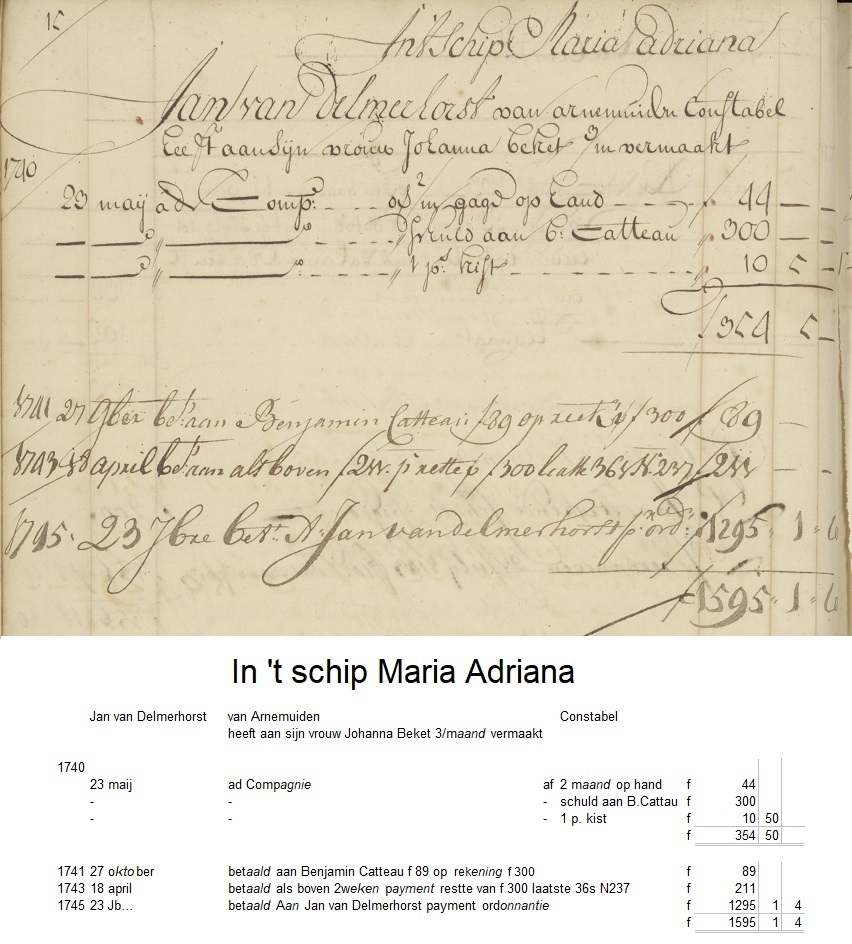 15
Int Schip Maria Adriana
Jan van Delmerhorst van arnemuiden Constabel
heeft aan sijn vrouw Johanna beket 3/m vermaakt
1740
23 maij ad Comp: - - - - op 2/m gagie op land - - - ƒ 44 — —
— — " — - - - - " schuld aan b: Catteau " 300 — —
— — " — - - - - " 1 ps kist - - - - - - " 10 5 —
ƒ 354 5 —
1741 27 9ber bet: aan Benjamin Catteau ƒ 89 op reek: ƒ 300 ƒ 89 —
1743 18 april bet: aan als boven ƒ 211 restte ƒ 300 N. 237 ƒ 211 — —
1745. 23 7bre bet: A: Jan van delmerhorst p: ord: ƒ 1295 " 1 " 6
ƒ 1595 " 1 " 6
In 't schip Maria Adriana
Jan van Delmerhorst van Arnemuiden Constabel
heeft aan sijn vrouw Johanna Beket 3/maand vermaakt
1740
23 maij ad Compagnie af 2 maand op hand f 44
- - - schuld aan B.Cattau f 300
- - - 1 p. kist f 10 50
f 354 50
1741 27 oktober betaald aan Benjamin Catteau f 89 op rekening f 300 f 89
1743 18 april betaald als boven 2weken payment restte van f 300 laatste 36s N237 f 211
1745 23 Jb... betaald Aan Jan van Delmerhorst payment ordonnantie f 1295 1 4
f 1595 1 4